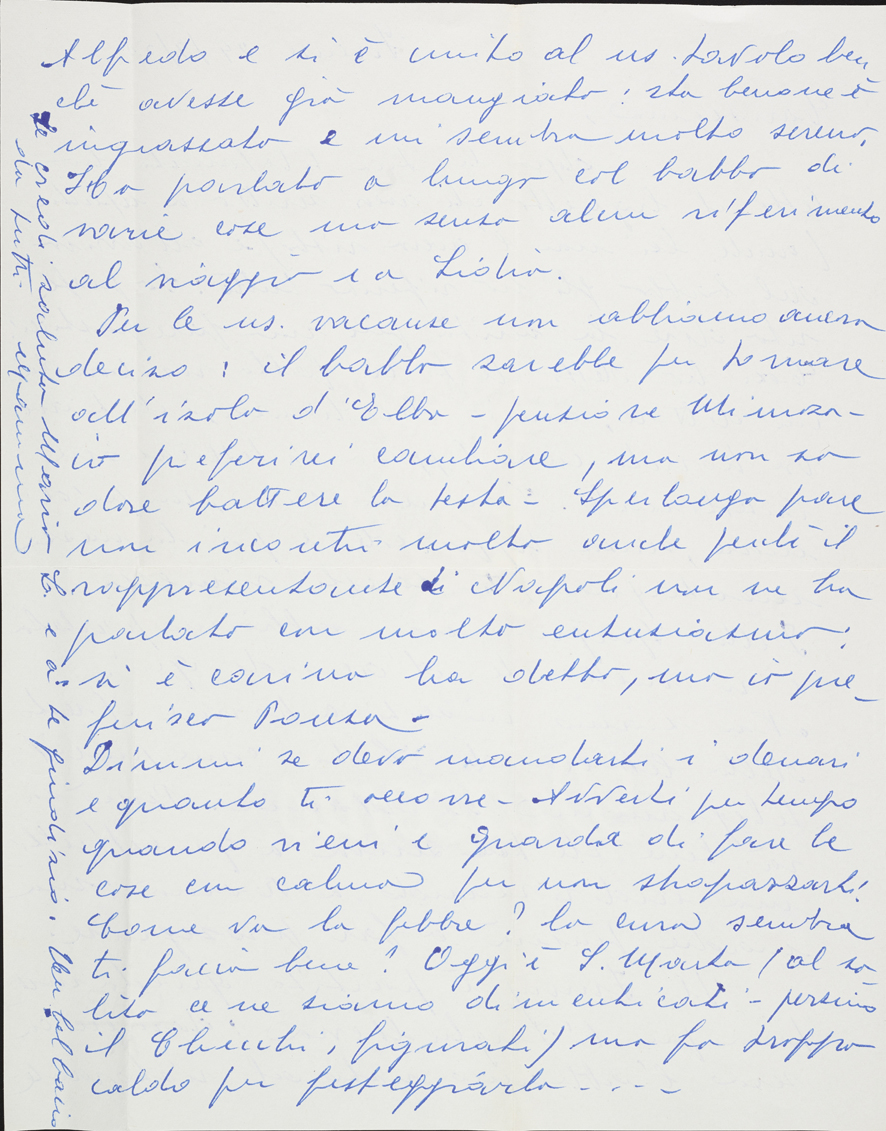 Alfredo e si è unito al ns. tavolo ben
chè avesse già mangiato: sta benone è
ingrassato e mi sembra molto sereno.
Ha parlato a lungo col babbo di
varie cose ma senza alcun riferimento
al viaggio e a Lidia.
Per le ns. vacanze non abbiamo ancora
deciso: il babbo sarebbe per tornare
all'isola d'Elba - pensione Mimosa -
io preferirei cambiare, ma non so
dove battere la testa - Sperlonga pare
non incontri molto anche perchè il
rappresentante di Napoli non ne ha
parlato con molto entusiasmo:
sì è carina ha detto, ma io pre-
ferisco Ponza -
Dimmi se devo mandarti i denari
e quanto ti occorre - Avverti per tempo
quando vieni e guarda di fare le
cose con calma per non strapazzarti!
Come va la febbre? la cura sembra
ti faccia bene? Oggi è S. Marta (al so-
lito ce ne siamo dimenticati - persino
il Chicchi, figurati) ma fa troppo
caldo per festeggiarla - - - -
Se credi saluta Mario L. e a te giudizio. Un bel bacio
da tutti mamma